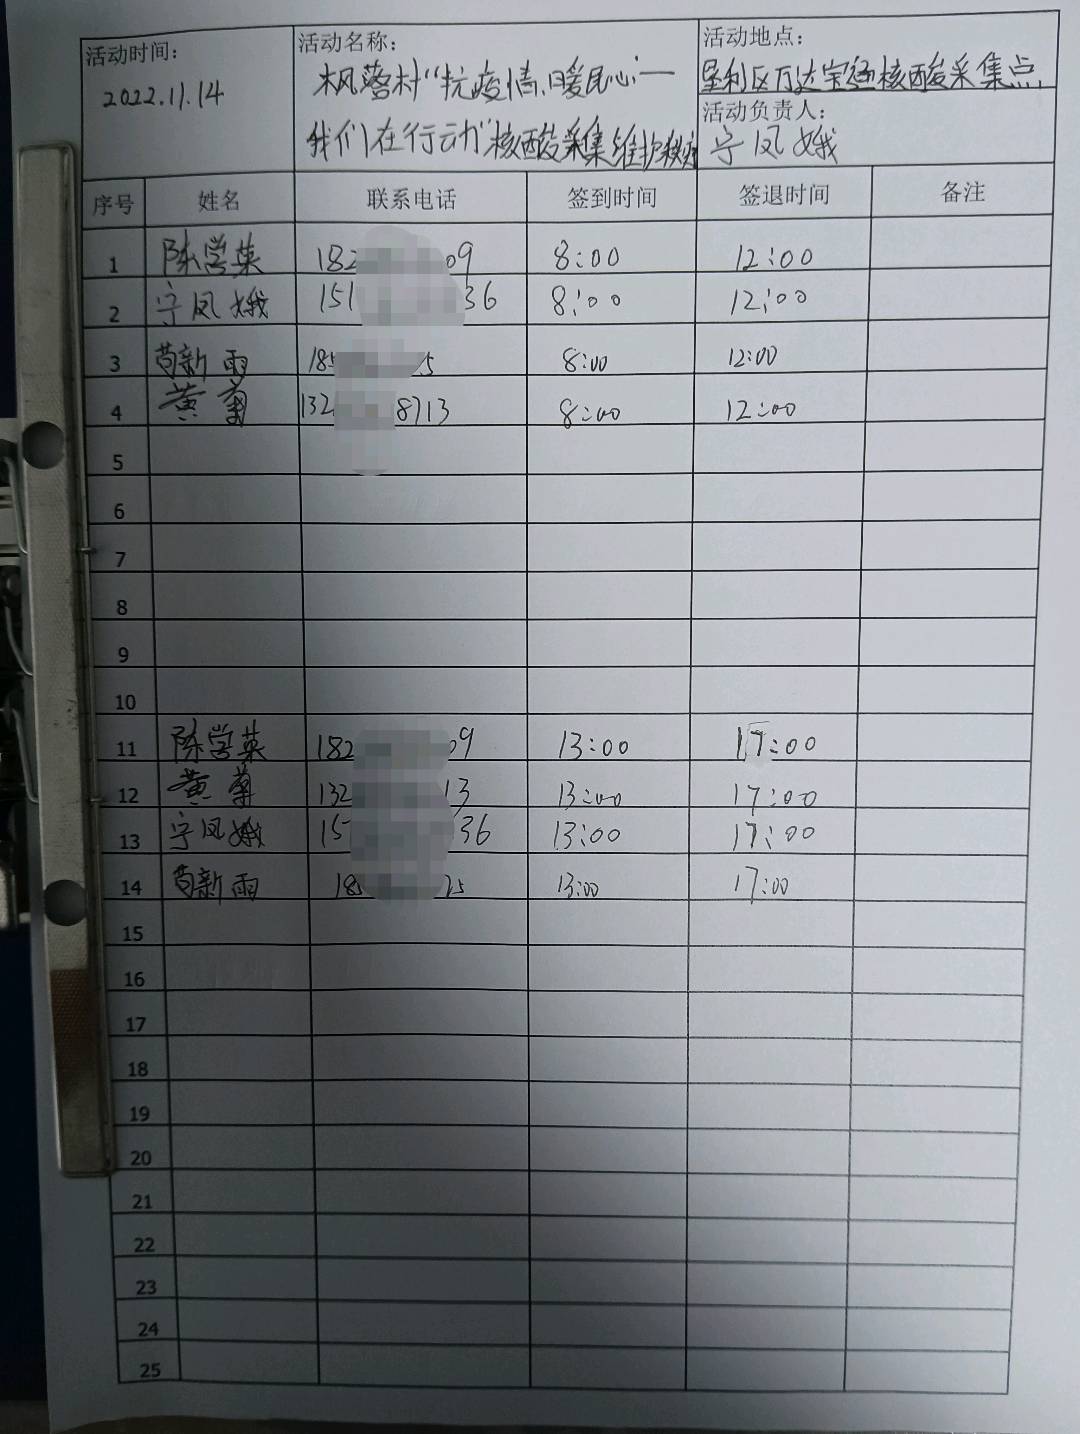 活动时间:
2022.11.14
活动名称:
枫落村“抗疫情、暖民心”一
我们在行动”核酸采集维护秩序
活动地点:
垦利区万达宝通核酸采集点
活动负责人:
宁凤娥
序号 姓名 联系电话 签到时间 签退时间 备注
1 陈学英 182 09 8:00 12:00
2 宁凤娥 151 36 8:00 12:00
3 苟新雨 185 5 8:00 12:00
4 黄菊 132 8713 8:00 12:00
5
6
7
8
9
10
11 陈学英 182 09 13:00 17:00
12 黄菊 132 13 13:00 17:00
13 宁凤娥 15 36 13:00 17:00
14 苟新雨 18 25 13:00 17:00
15
16
17
18
19
20
21
22
23
24
25